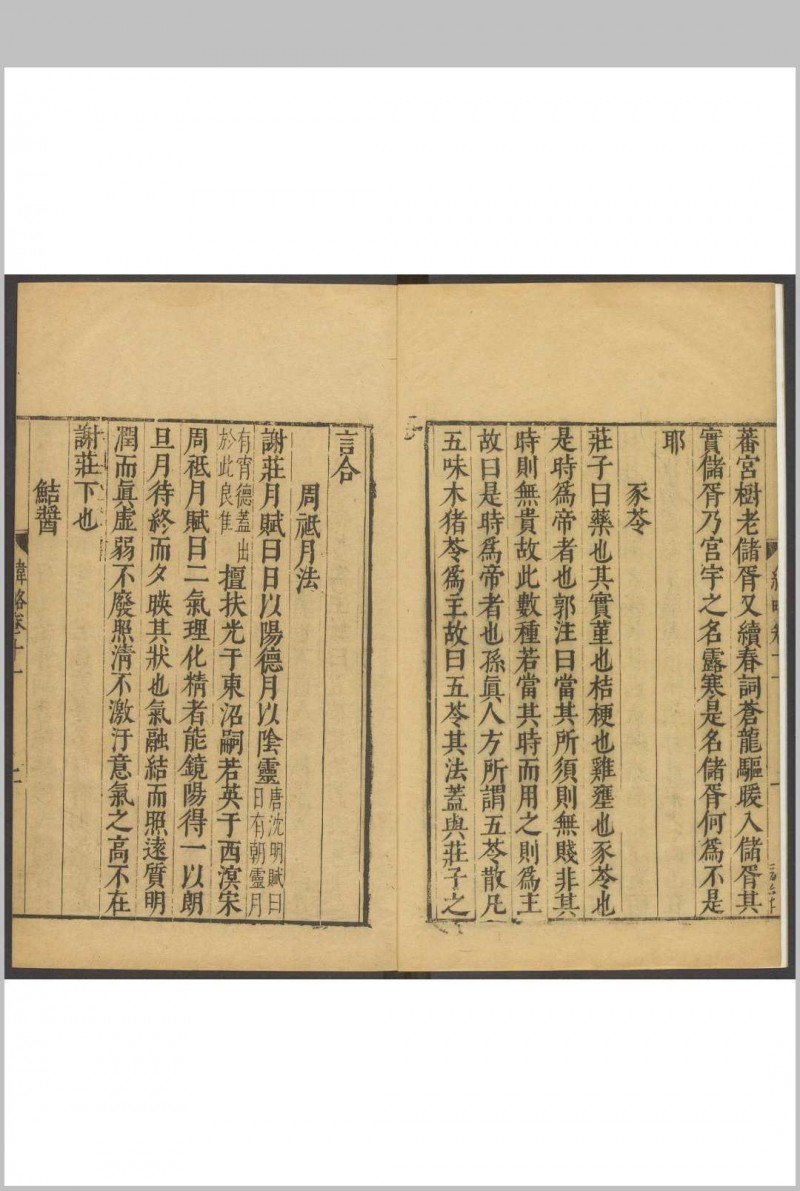 蕃宮樹老儲胥又續春詞蒼龍驅暖入儲胥其
實儲胥乃宮宇之名露寒是名儲胥何爲不是
耶
豕苓
莊子曰藥也其實堇也桔梗也雞壅也豕苓也
是時爲帝者也郭注曰當其所須則無賤非其
時則無貴故此數種若當其時而用之則爲主
故曰是時爲帝者也孫眞人方所謂五苓散凡
五味木猪苓爲主故曰五苓其法蓋與莊子之
言合
周祗月法
謝莊月賦曰日以陽德月以陰靈唐沈明賦曰日有朝靈月有宵德蓋出於此良隹擅扶光于東沼嗣若英于西溟宋
周祗月賦曰二氣理化精者能鏡陽得一以朗
旦月待終而夕暎其狀也氣融結而照遠質明
潤而眞虛弱不廢照清不激汙意氣之高不在
謝莊下也
鮚醬
緯略卷十一